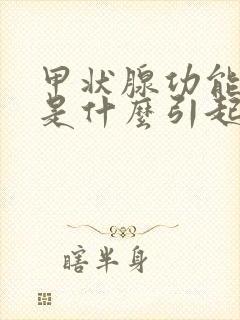 甲状腺功能
是什麼引起
瞎半身